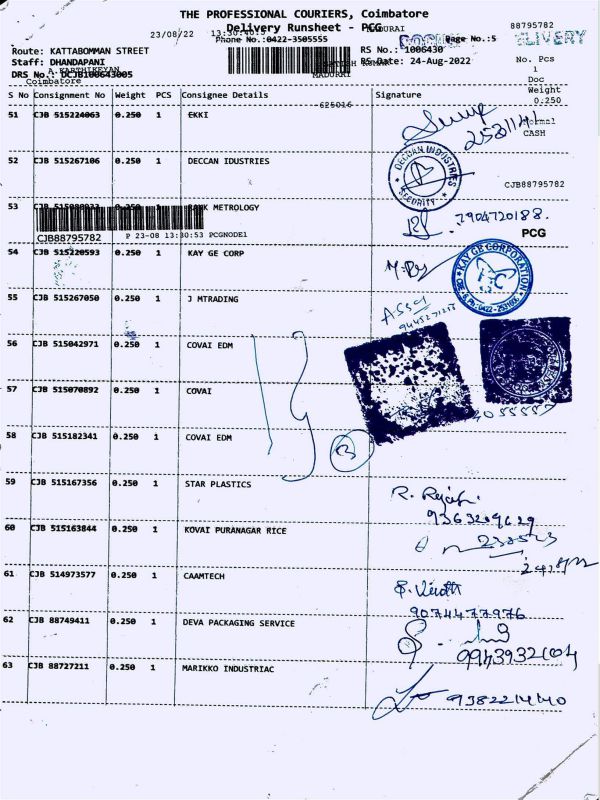 THE PROFESSIONAL COURIERS, Coimbatore
Delivery Runsheet - PCG
23/08/22 13:30:40
MADURAI
88795782
Phone No.:0422-3505555
Page No.:5
DELIVERY
Route: KATTABOMMAN STREET
RS No.: 1006430
Staff: DHANDAPANI
RS Date: 24-Aug-2022
No. Pcs
1
A KARTHIKEYAN
DRS No.: DCJB100643005
MADURAI
Doc
Coimbatore
Weight
0.250
S No Consignment No Weight PCS Consignee Details Signature
625016
51 CJB 515224063 0.250 1 EKKI
Normal
CASH
52 CJB 515267106 0.250 1 DECCAN IDUSTRIES
DECCAN INDUSTRIES
SECURITY
CJB88795782
53 0.250 1 METROLOGY
7904720188.
CJB88795782 P 23-08 13:30:53 PCGNODE1
PCG
54 CJB 515220593 0.250 1 KAY GE CORP
KAY GE CORPORATION
55 CJB 515267050 0.250 1 J MTRADING
56 CJB 515042971 0.250 1 COVAI EDM
57 CJB 515070892 0.250 1 COVAI
58 CJB 515182341 0.250 1 COVAI EDM
59 CJB 515167356 0.250 1 STAR PLASTICS
60 CJB 515163844 0.250 1 KOVAI PURANAGAR RICE
61 CJB 514973577 0.250 1 CAAMTECH
9074477976
62 CJB 88749411 0.250 1 DEVA PACKAGING SERVICE
63 CJB 88727211 0.250 1 MARIKKO INDUSTRIAC